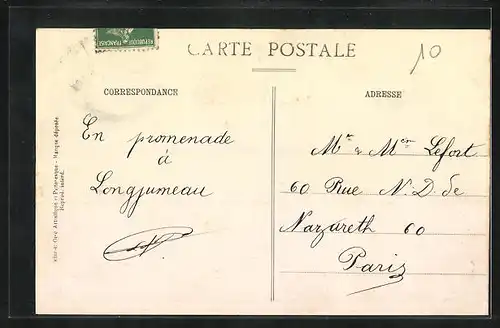 RÉPUBLIQUE FRANÇAISE
CARTE POSTALE
10
CORRESPONDANCE
ADRESSE
En promenade
à
Longjumeau
Mr & Mme Lefort
60 Rue N. D. de
Nazareth 60
Paris
Marque déposée
Reprod. interd.